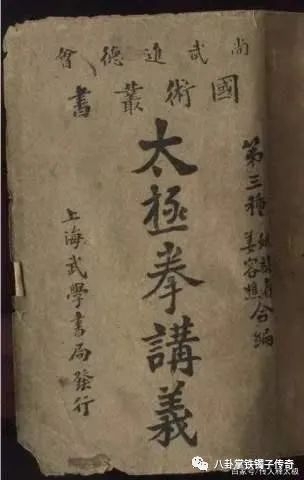 尚武進德會
國術叢書
第三種
姚馥春
姜容樵
合編
太極拳講義
上海武學書局發行
八卦掌铁镯子传奇